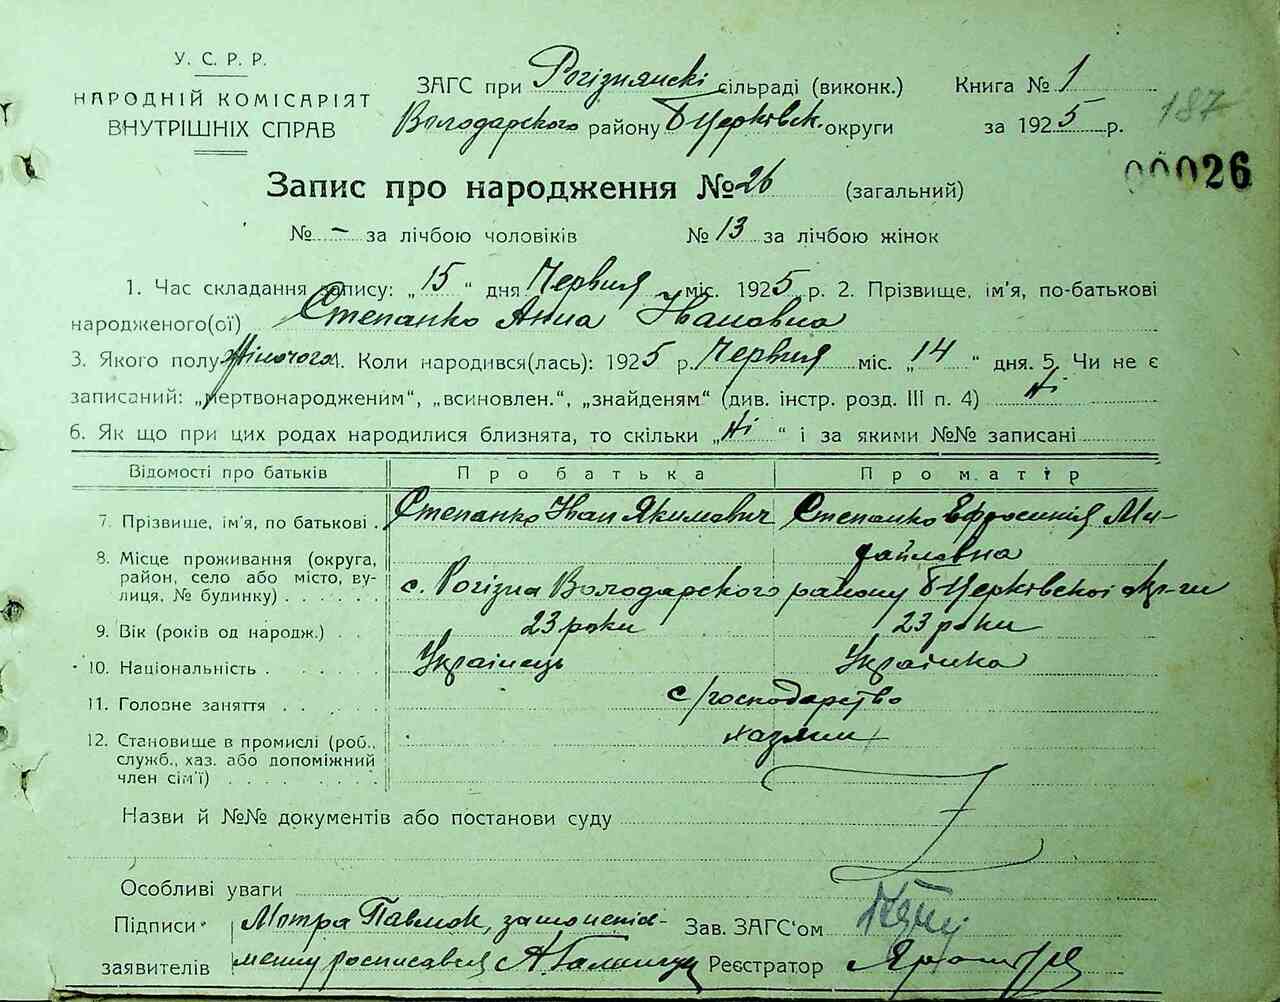 У. С. Р. Р.
НАРОДНІЙ КОМІСАРІЯТ
ВНУТРІШНІХ СПРАВ
ЗАГС при Рогізнянскі сільраді (виконк.) Книга № 1
Володарского району Б Церківск. округи за 1925 р.
187
00026
Запис про народження № 26 (загальний)
№ – за лічбою чоловіків № 13 за лічбою жінок
1. Час складання запису: „15“ дня Червня міс. 1925 р. 2. Прізвище, ім'я, по-батькові
народженого(ої) Степанко Анна Івановна
3. Якого полу Жіночого 4. Коли народився(лась): 1925 р. Червня міс. „14“ дня. 5. Чи не є
записаний: „мертвонародженим“, „всиновлен.“, „знайденям“ (див. інстр. розд. III п. 4) Ні
6. Як що при цих родах народилися близнята, то скільки „Ні“ і за якими №№ записані
Відомості про батьків Про батька Про матір
7. Прізвище, ім'я, по батькові . Степанко Іван Якимович Степанко Ефросинія Ми-
хайловна
8. Місце проживання (округа,
район, село або місто, ву-
лиця, № будинку) . . . . . с. Рогізна Володарского району Б Церківскоі окр-ги
9. Вік (років од народж.) . . 23 роки 23 роки
10. Національність . . . . . Украінець Украінка
11. Головне заняття . . . . с/господарство
12. Становище в промислі (роб.,
служб., хаз. або допоміжний
член сім'ї) . . . . . . .
Назви й №№ документів або постанови суду
Особливі уваги
Підписи Мотра Павлюк, за
заявителів росписався
Зав. ЗАГС'ом
Реєстратор